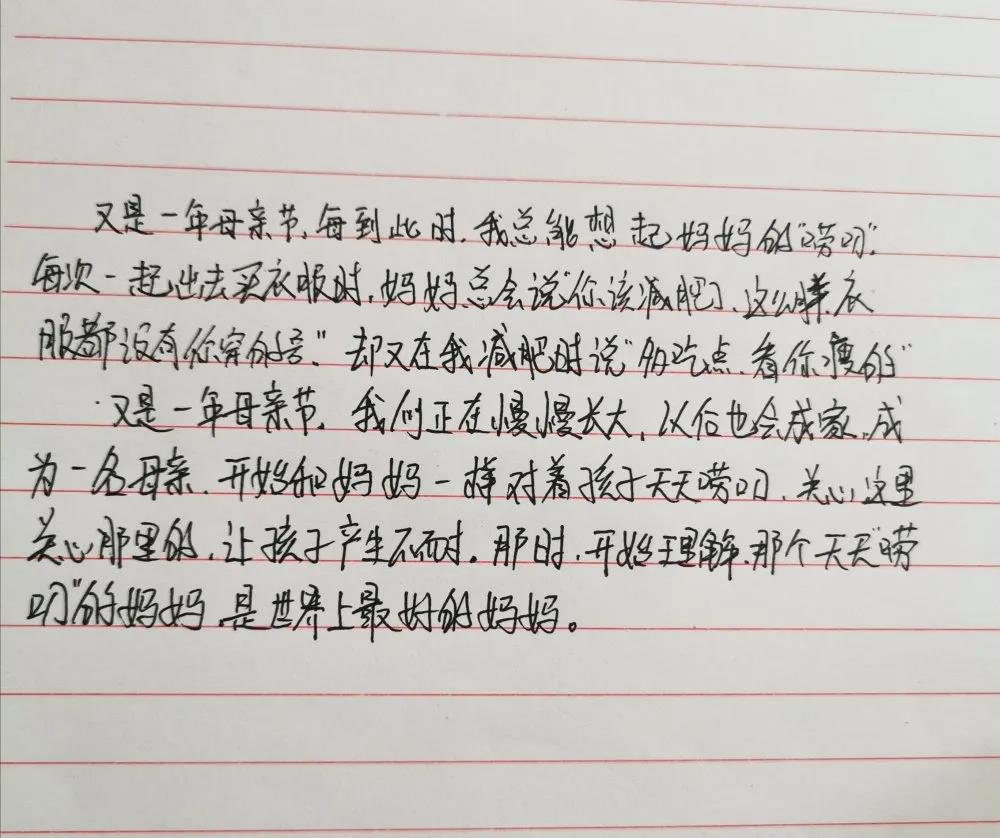 又是一年母亲节,每到此时,我总能想起妈妈的“唠叨”.
每次一起出去买衣服时,妈妈总会说“你该减肥了,这么胖,衣
服都没有你穿的号.”却又在我减肥时说“多吃点,看你瘦的”
又是一年母亲节,我们正在慢慢长大,以后也会成家,成
为一名母亲,开始和妈妈一样对着孩子天天唠叨,关心这里
关心那里的,让孩子产生不耐.那时,开始理解,那个天天“唠
叨”的妈妈,是世界上最好的妈妈。